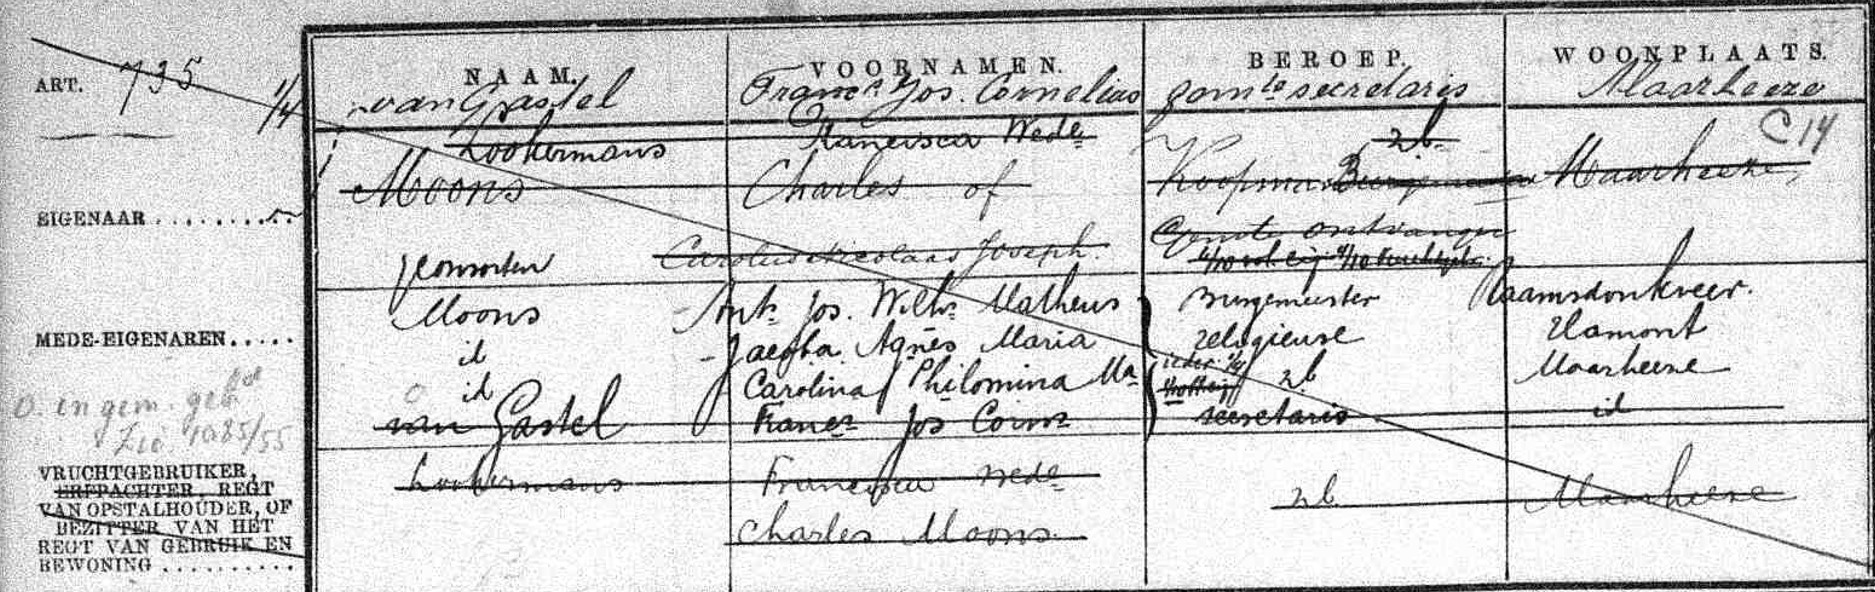 ART. 735
NAAM. VOORNAMEN. BEROEP. WOONPLAATS.
1/4 van Gastel Francs Jos. Cornelius gemte secretaris Maarheeze
Lookermans Francisca Wede zb. C 14
Moons Charles of Koopman Burgemeester Maarheeze,
EIGENAAR
Gemte ontvanger
consorten Carolus Nicolaas Joseph.
MEDE-EIGENAREN
Moons Ant. Jos. Wilhs Matheus Burgemeester Raamsdonkveer.
id Jacoba Agnes Maria religieuse Hamont
id Carolina Philomina Ma ieder 1/4 zb Maarheeze
van Gastel Francs Jos Corns secretaris id
O. en gem. gebd
Zie 1085/55
VRUCHTGEBRUIKER,
ERFPACHTER, REGT
VAN OPSTALHOUDER, OF
BEZITTER VAN HET
REGT VAN GEBRUIK EN
BEWONING
Lookermans Francisca Wede zb. Maarheeze
Charles Moons.